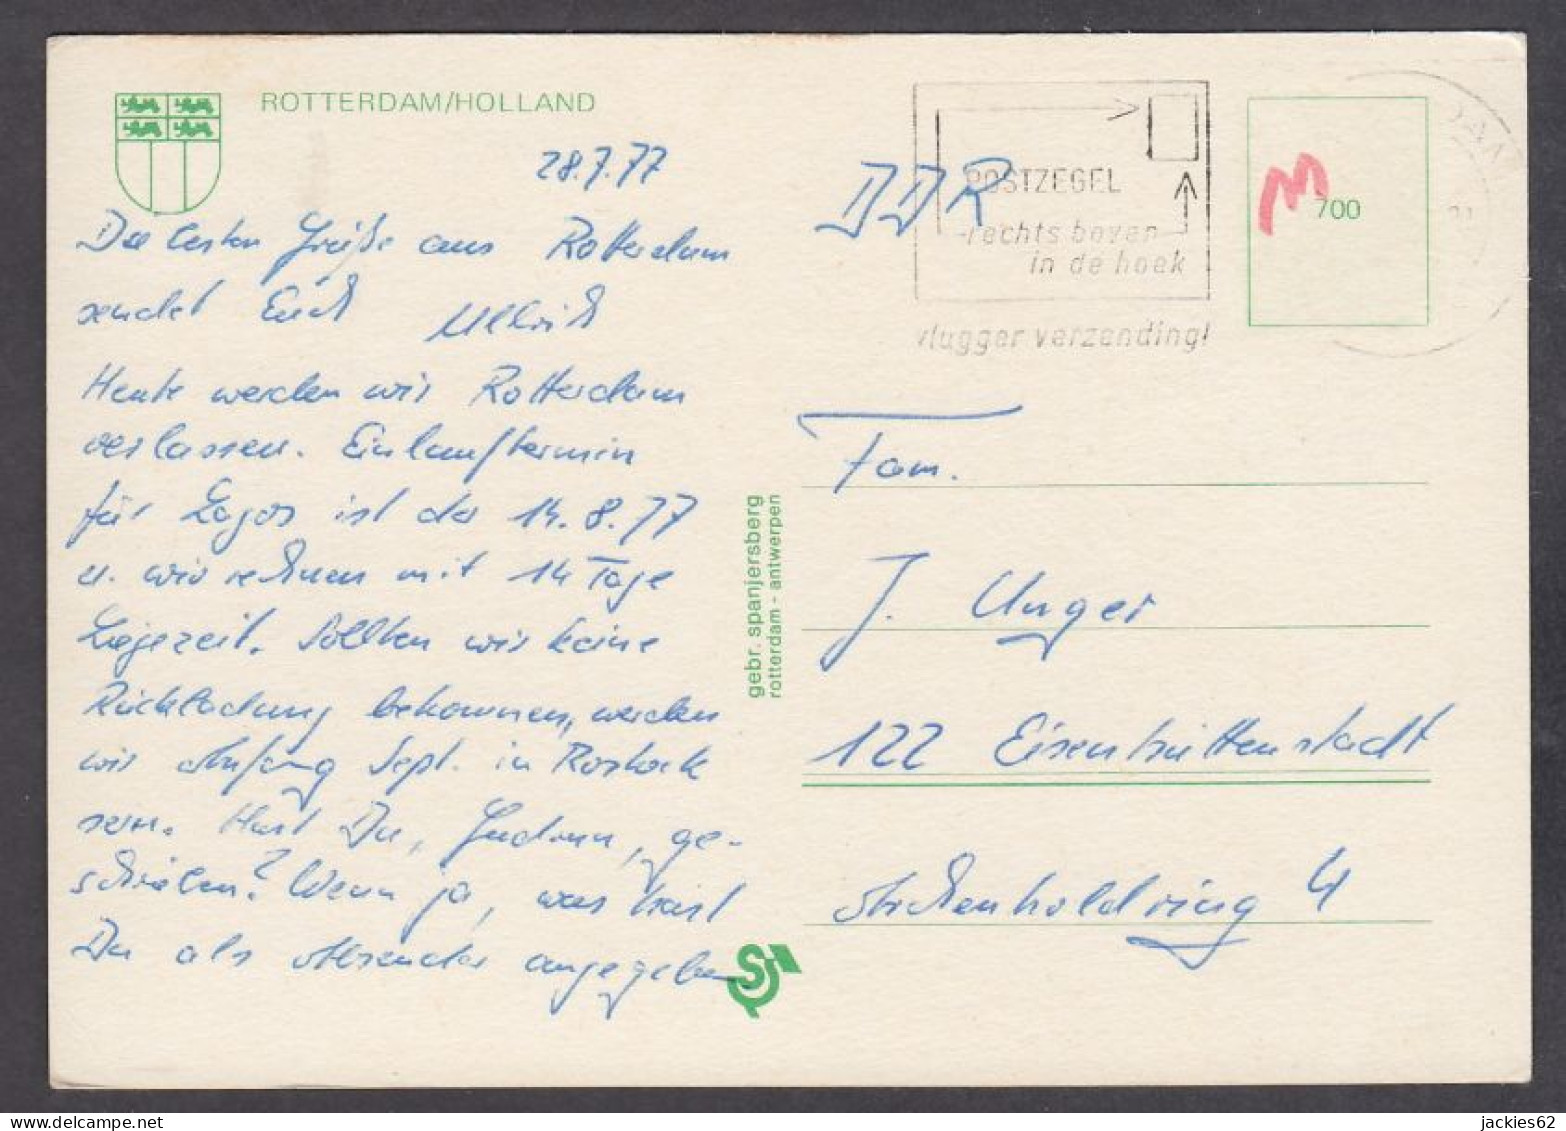 ROTTERDAM/HOLLAND
28.7.77
Die besten Grüße aus Rotterdam
sendet Euch Ullrich
Heute werden wir Rotterdam
verlassen. Einlauftermin
für Lagos ist der 14.8.77
u. wir rechnen mit 14 Tage
Liegezeit. Sollten wir keine
Rückladung bekommen, werden
wir Anfang Sept. in Rostock
sein. Hast Du, Gudrun, ge-
schrieben? Wenn ja, was hast
Du als Absender angegeben
gebr. spanjersberg
rotterdam - antwerpen
DDR
POSTZEGEL
rechts boven
in de hoek
vlugger verzending!
M
700
Fam.
J. Unger
122 Eisenhüttenstadt
Archenholdring 4
jackies62